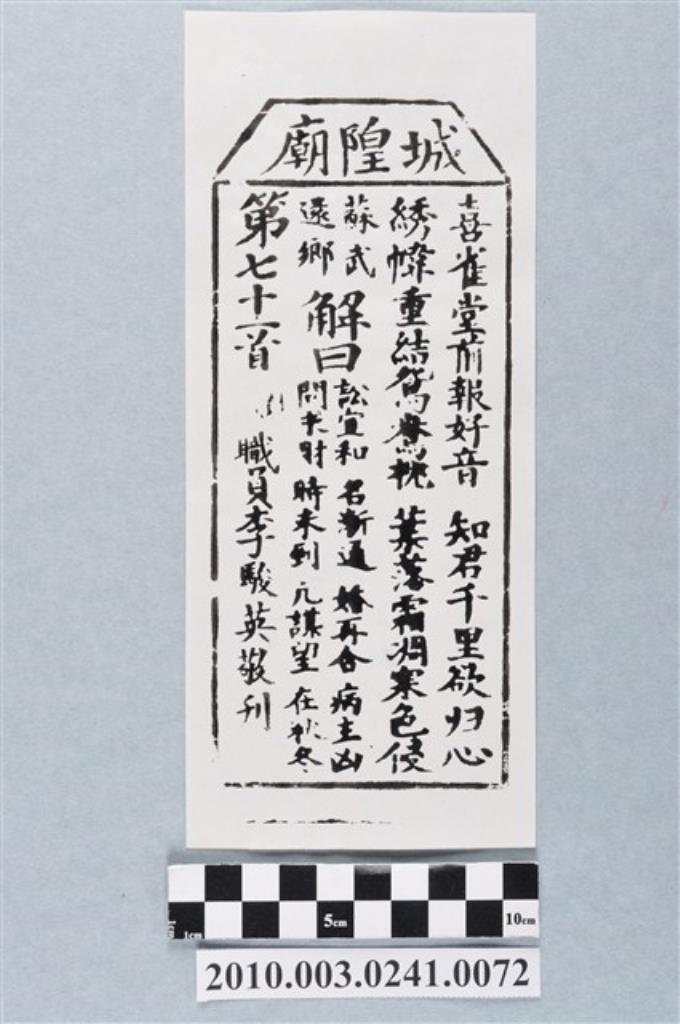 城隍廟
喜雀堂前報好音 知君千里欲归心
綉幃重結鴛鴦枕 葉落霜凋寒色侵
蘇武
還鄉
解曰
訟宜和 名漸通 婚再合 病主凶
問求財 時未到 凡謀望 在秋冬
第七十一首
職員李駿英敬刊
1cm 5cm 10cm
2010.003.0241.0072